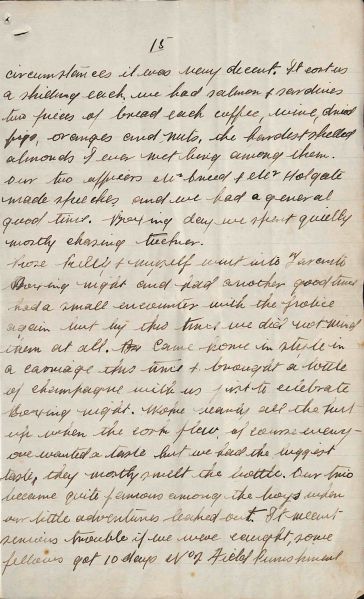 15
circumstances it was very decent. It cost us
a shilling each, we had salmon & sardines
two pieces of bread each coffee, wine, dried
figs, oranges and nuts, the hardest shelled
almonds I ever met being among them.
Our two officers Mr Creed & Mr Holgate
made speeches and we had a general
good time. Boxing day we spent quietly
mostly chasing tucker.
Rose Kelly & myself went into
Boxing night and had another good time
had a small encounter with the police
again but by this time we did not mind
them at all. We came home in style in
a carriage this time & brought a bottle
of champagne with us just to celebrate
Boxing night. Woke nearly all the hut
up when the cork flew, of course every-
one wanted a taste but we had the biggest
taste, they mostly smelt the bottle. Our trio
became quite famous among the boys when
our little adventures leaked out. It meant
serious trouble if we were caught, some
fellows got 10 days No 2 Field Punishment